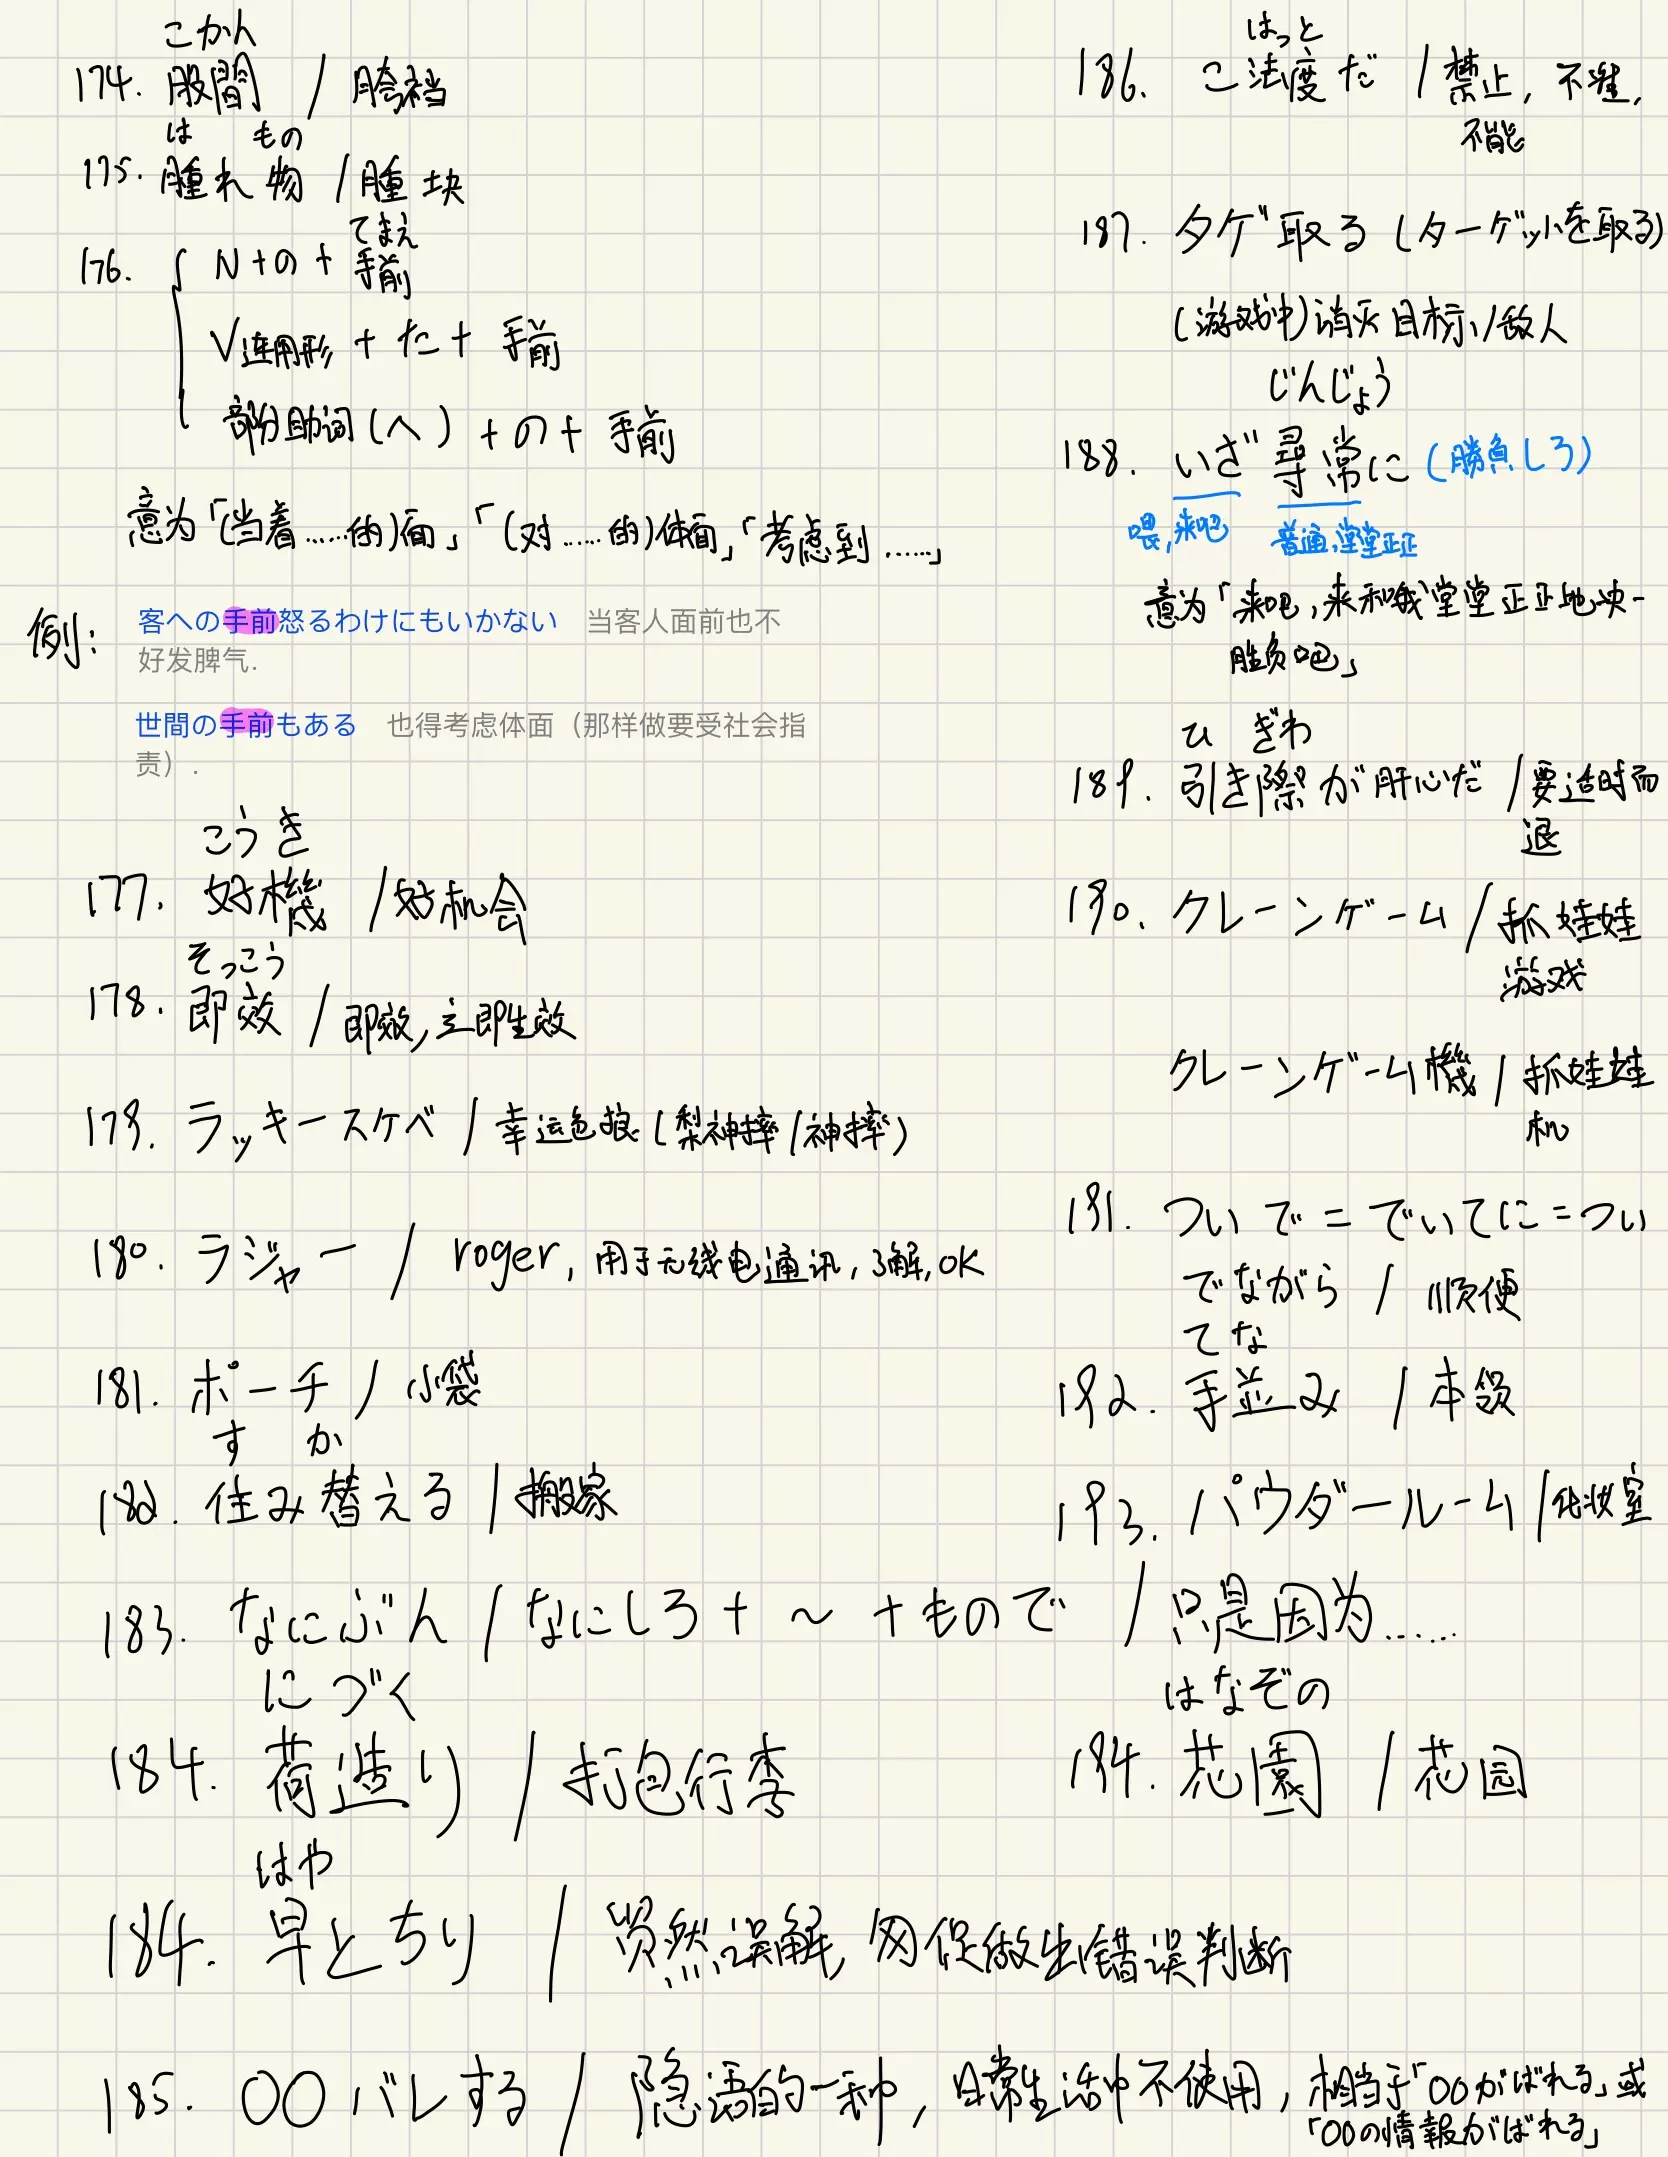 こかん
174. 股間 / 胯裆
は もの
175. 腫れ物 / 腫块
てまえ
176. N+の+手前
V连用形+た+手前
部分助词(へ)+の+手前
意为「(当着……的)面」「(对……的)体面」「考虑到……」
例:
客への手前怒るわけにもいかない 当客人面前也不
好发脾气.
世間の手前もある 也得考虑体面（那样做要受社会指
责）.
こうき
177. 好機 / 好机会
そっこう
178. 即效 / 即效,立即生效
179. ラッキースケベ / 幸运色狼(梨神摔/神摔)
180. ラジャー / roger,用于无线电通讯,了解,OK
181. ポーチ / 小袋
す か
182. 住み替える / 搬家
183. なにぶん / なにしろ+～+もので / 只是因为……
にづく
184. 荷造り / 打包行李
はや
184. 早とちり / 贸然误解,匆促做出错误判断
185. 〇〇バレする / 隐语的一种,日常生活中不使用,相当于「〇〇がばれる」或
「〇〇の情報がばれる」
はっと
186. ご法度だ / 禁止,不准,
不能
187. タゲ取る(ターゲットを取る)
(游戏中)消灭目标/敌人
じんじょう
188. いざ尋常に(勝負しろ)
喂,来吧 普通,堂堂正正
意为「来吧,来和我堂堂正正地决一
胜负吧」
ひ ぎわ
189. 引き際が肝心だ / 要适时而
退
190. クレーンゲーム / 抓娃娃
游戏
クレーンゲーム機 / 抓娃娃
机
191. ついで=でいてに=つい
でながら / 顺便
てな
192. 手並み / 本领
193. パウダールーム / 化妆室
はなぞの
194. 花園 / 花园